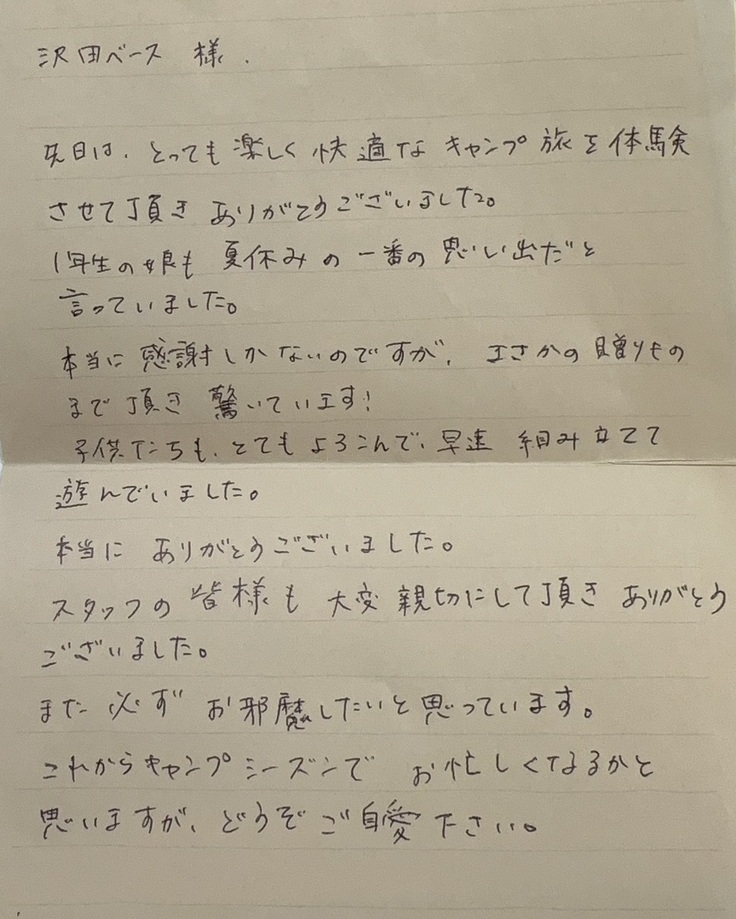 沢田ベース 様.
先日は、とっても楽しく快適なキャンプ旅を体験
させて頂きありがとうございました。
1年生の娘も夏休みの一番の思い出だと
言っていました。
本当に感謝しかないのですが、まさかの贈りもの
まで頂き驚いています!
子供たちも、とてもよろこんで、早速組み立てて
遊んでいました。
本当にありがとうございました。
スタッフの皆様も大変親切にして頂きありがとう
ございました。
また必ずお邪魔したいと思っています。
これからキャンプシーズンでお忙しくなるかと
思いますが、どうぞご自愛下さい。